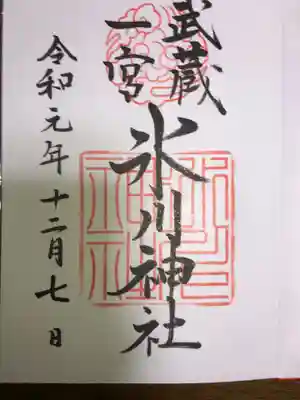 武蔵
一宮
氷川神社
令和元年十二月七日